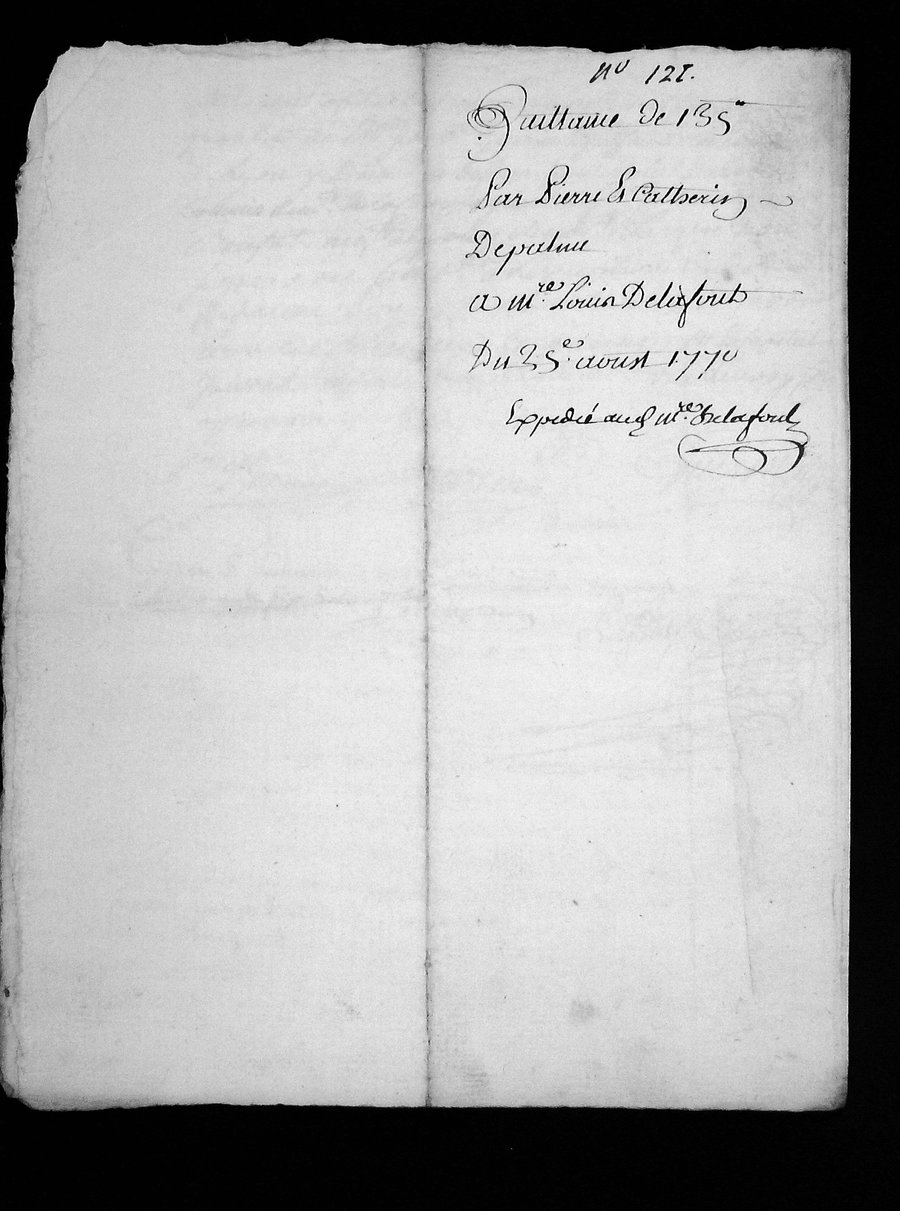 no 121.
Quittance de 135 ""
Par Pierre Et Catherin
Depalme
a mre. Louis Delafont
Du 25e. aoust 1770
Expedié aud mre. Delafont